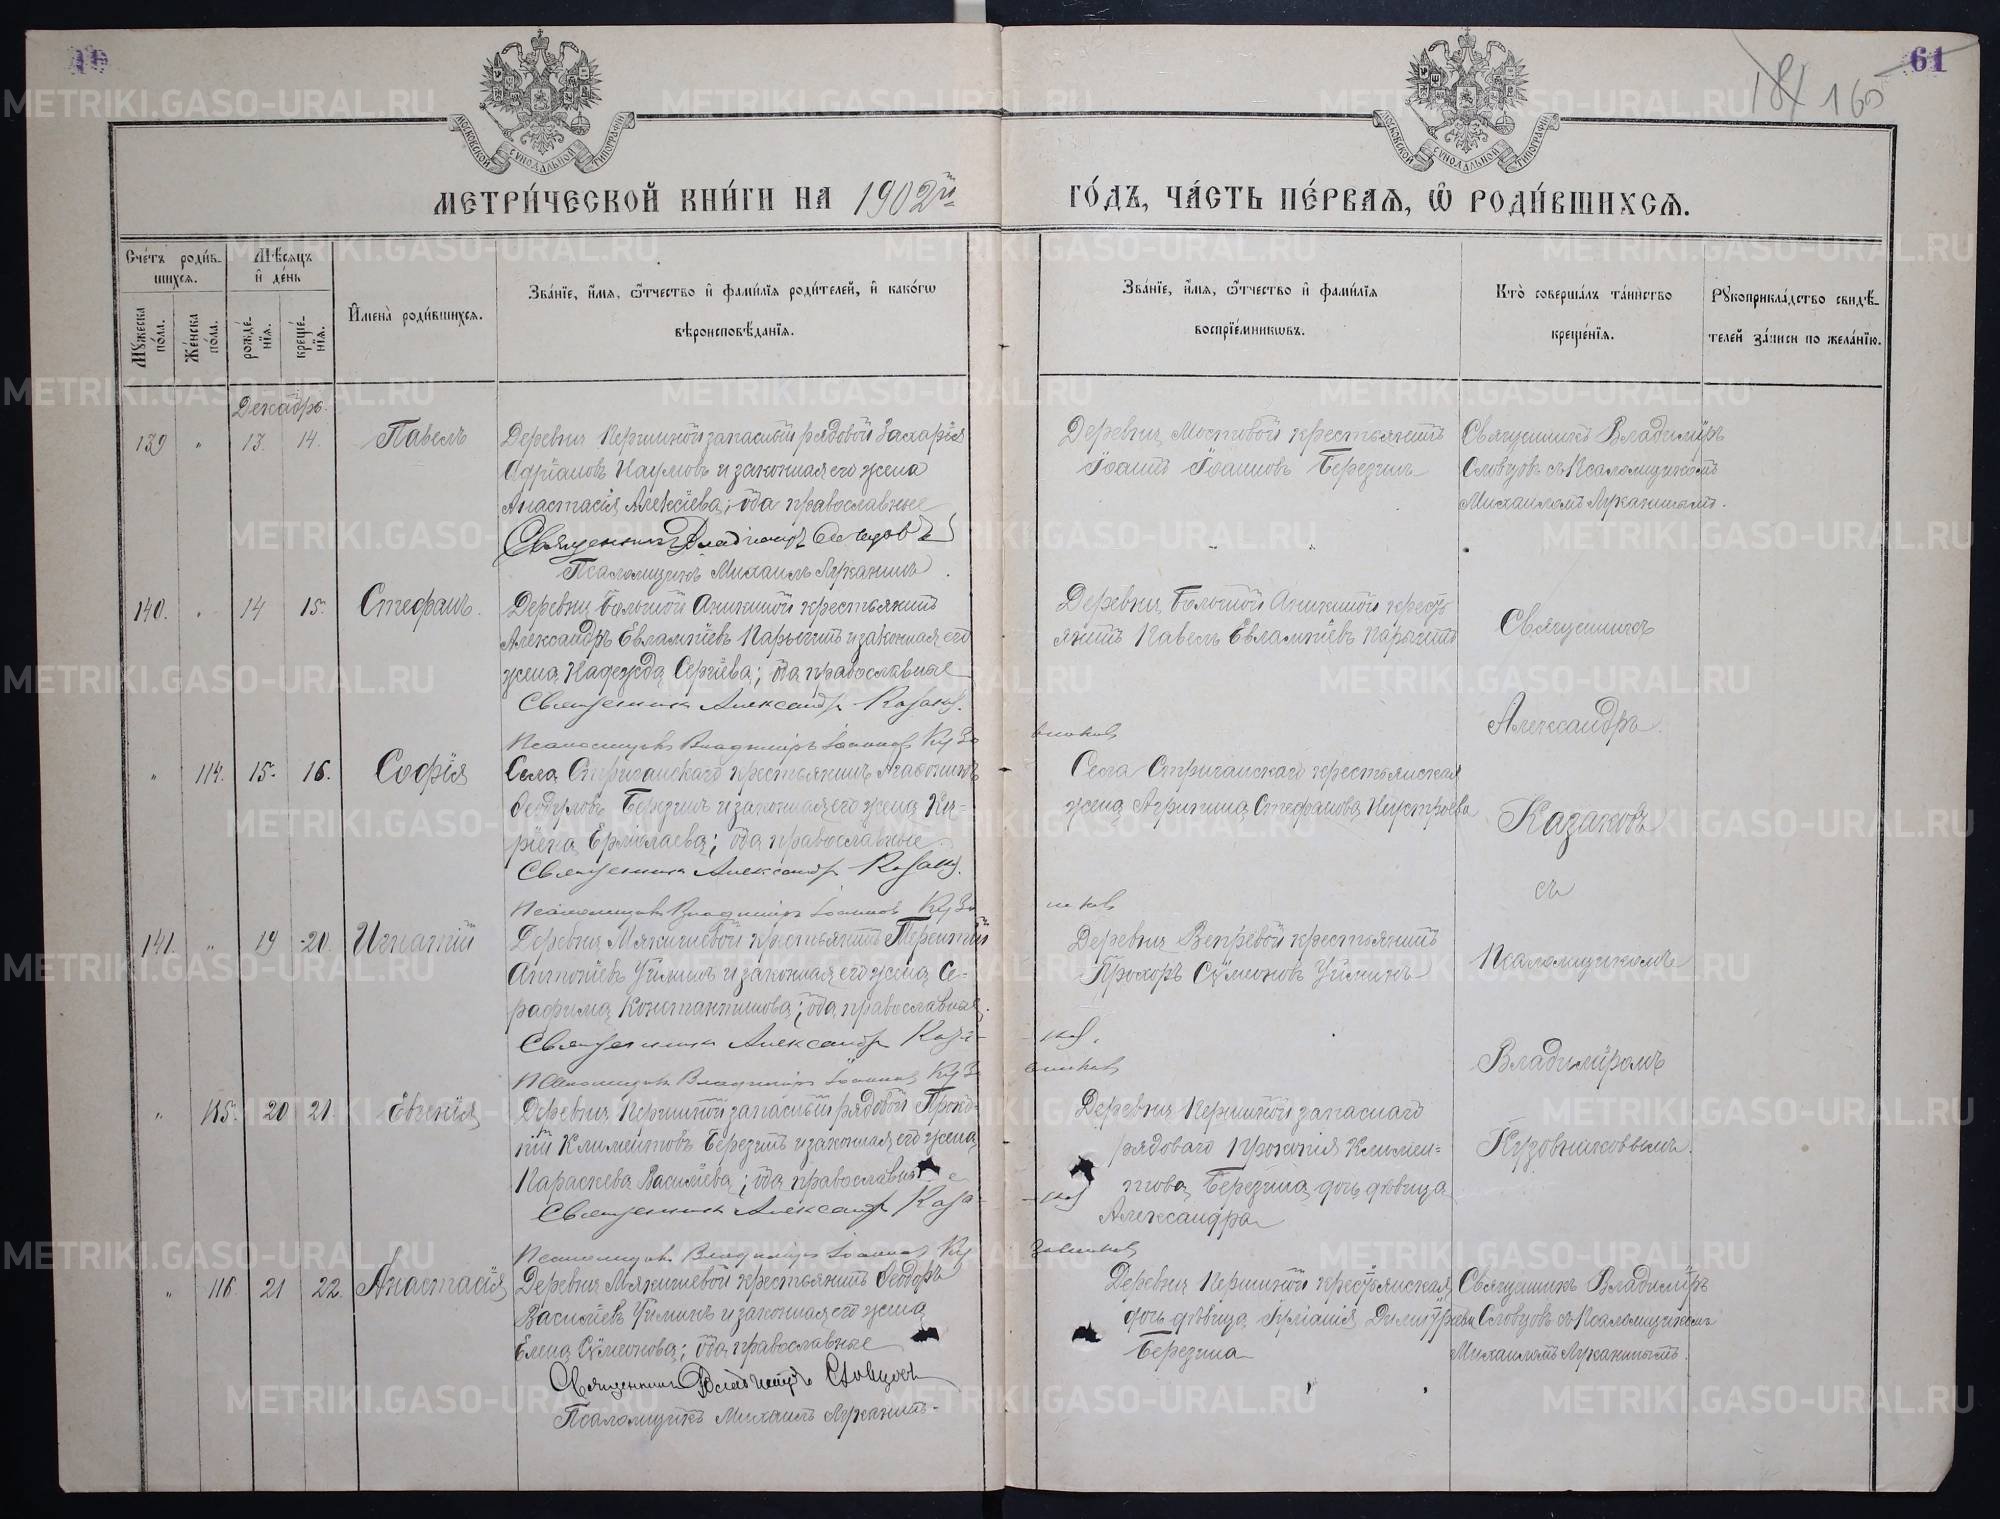 61
165
МОСКОВСКОЙ СѴНОДАЛЬНОЙ ТИПОГРАФІИ
МОСКОВСКОЙ СѴНОДАЛЬНОЙ ТИПОГРАФІИ
МЕТРИ́ЧЕСКОЙ КНИ́ГИ НА 1902й ГО́ДЪ, ЧА́СТЬ ПЕ́РВАЯ, Ѽ РОДИ́ВШИХСЯ.
Сче́тъ роди́в-
шихся.
Мѣ́сяцъ
и҆ де́нь
Мꙋ́жеска по́ла.
Же́нска по́ла.
рожде́-
нїя.
креще́-
нїя.
И҆мена̀ роди́вшихся.
Зва́нїе, и҆́мя, ѻ҆́тчество и҆ фами́лїя роди́телей, и҆ како́гѡ
вѣроисповѣ́данїя.
Зва́нїе, и҆́мя, ѻ҆́тчество и҆ фами́лїя
воспрїе́мникѡвъ.
Кто̀ соверша́лъ та́инство
креще́нїя.
Рꙋкоприкла́дство свидѣ́-
телей за́писи по жела́нїю.
Декабрь.
139 " 13. 14. Павелъ
Деревни Першиной запасный рядовой Захарія
Адріановъ Наумовъ и законная его жена
Анастасія Алексіева; оба православные
Священникъ Владиміръ Словцовъ
Псаломщикъ Михаилъ Луканинъ
Деревни Мостовой крестьянинъ
Іоаннъ Іоанновъ Березинъ
Священникъ Владиміръ
Словцовъ съ Псаломщикомъ
Михаиломъ Луканинымъ.
140. " 14 15. Стефанъ.
Деревни Большой Аникиной крестьянинъ
Александръ Евлампіевъ Парыгинъ и законная его
жена Надежда Сергіева; оба православные
Священникъ Александръ Казаковъ.
Псаломщикъ Владиміръ Іоанновъ Кузо
вниковъ
Деревни Большой Аникиной кресть
янинъ Павелъ Евлампіевъ Парыгинъ
Священникъ
Александръ
Казаковъ
съ
Псаломщикомъ
Владиміромъ
Кузовниковымъ.
" 114. 15. 16. Софія
Села Стриганскаго крестьянинъ
Ѳеодуловъ Березинъ и законная его жена Ки-
ріена Ермолаева; оба православные
Священникъ Александръ Казаковъ.
Псаломщикъ Владиміръ Іоанновъ Кузо
вниковъ
Села Стриганскаго крестьянская
жена Агрипина Стефанова Пустроева
141. " 19 20. Игнатій
Деревни Мякишевой крестьянинъ Терентій
Антоніевъ Уйминъ и законная его жена Се-
рафима Константинова; оба православные.
Священникъ Александръ Каза-
ковъ.
Псаломщикъ Владиміръ Іоанновъ Кузо
вниковъ
Деревни Вепревой крестьянинъ
Прохоръ Сѵмеоновъ Уйминъ
" 115. 20 21. Евгенія
Деревни Першиной запасный рядовой Проко-
пій Климентовъ Березинъ и законная его жена
Параскева Василіева; оба православные
Священникъ Александръ Каза-
ковъ
Псаломщикъ Владиміръ Іоанновъ Ку
зовниковъ
Деревни Першиной запаснаго
рядоваго Прокопія Климен-
това Березина дочь дѣвица
Александра
" 116. 21 22. Анастасія
Деревни Мякишевой крестьянинъ Ѳеодоръ
Василіевъ Уйминъ и законная его жена
Елена Сѵмеонова; оба православные
Священникъ Владиміръ Словцовъ
Псаломщикъ Михаилъ Луканинъ.
Деревни Першиной крестьянская
дочь дѣвица Іуліанія Димитріева
Березина
Священникъ Владиміръ
Словцовъ съ Псаломщикомъ
Михаиломъ Луканинымъ.
METRIKI.GASO-URAL.RU